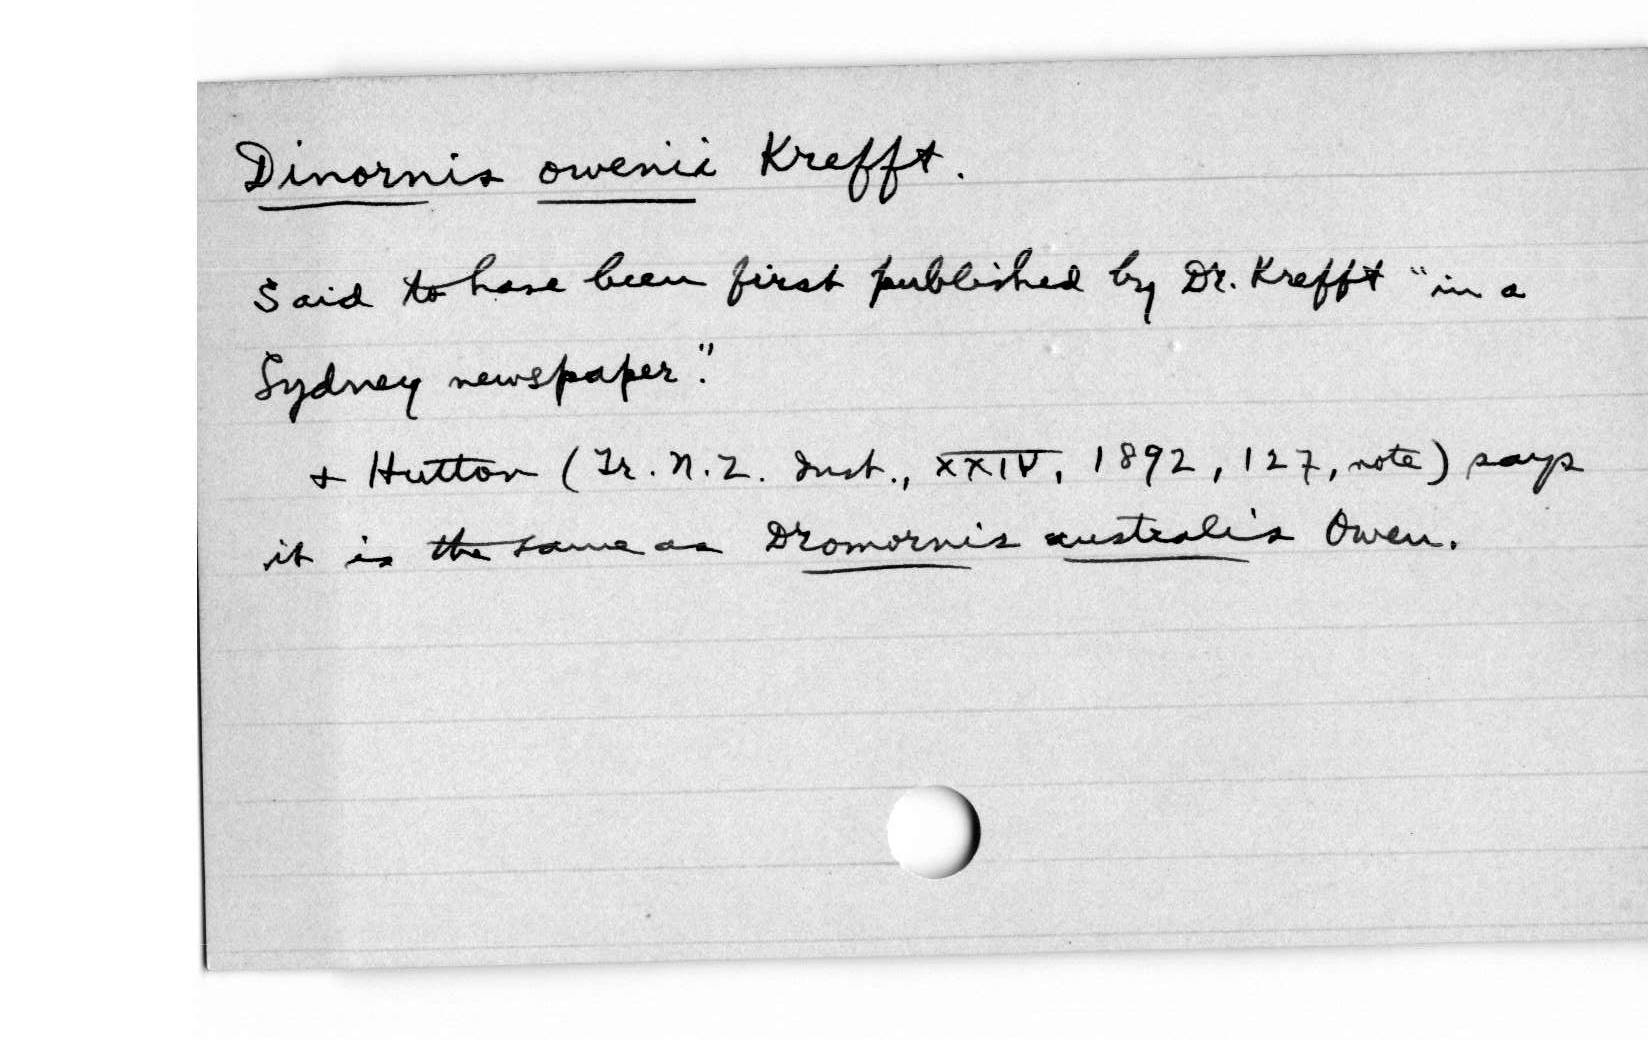 Dinornis owenii Krefft.
Said to have been first published by Dr. Krefft "in a
Sydney newspaper."
+ Hutton (Tr. N.Z. Inst., XXIV, 1892, 127, note) says
it is the same as Dromornis australis Owen.